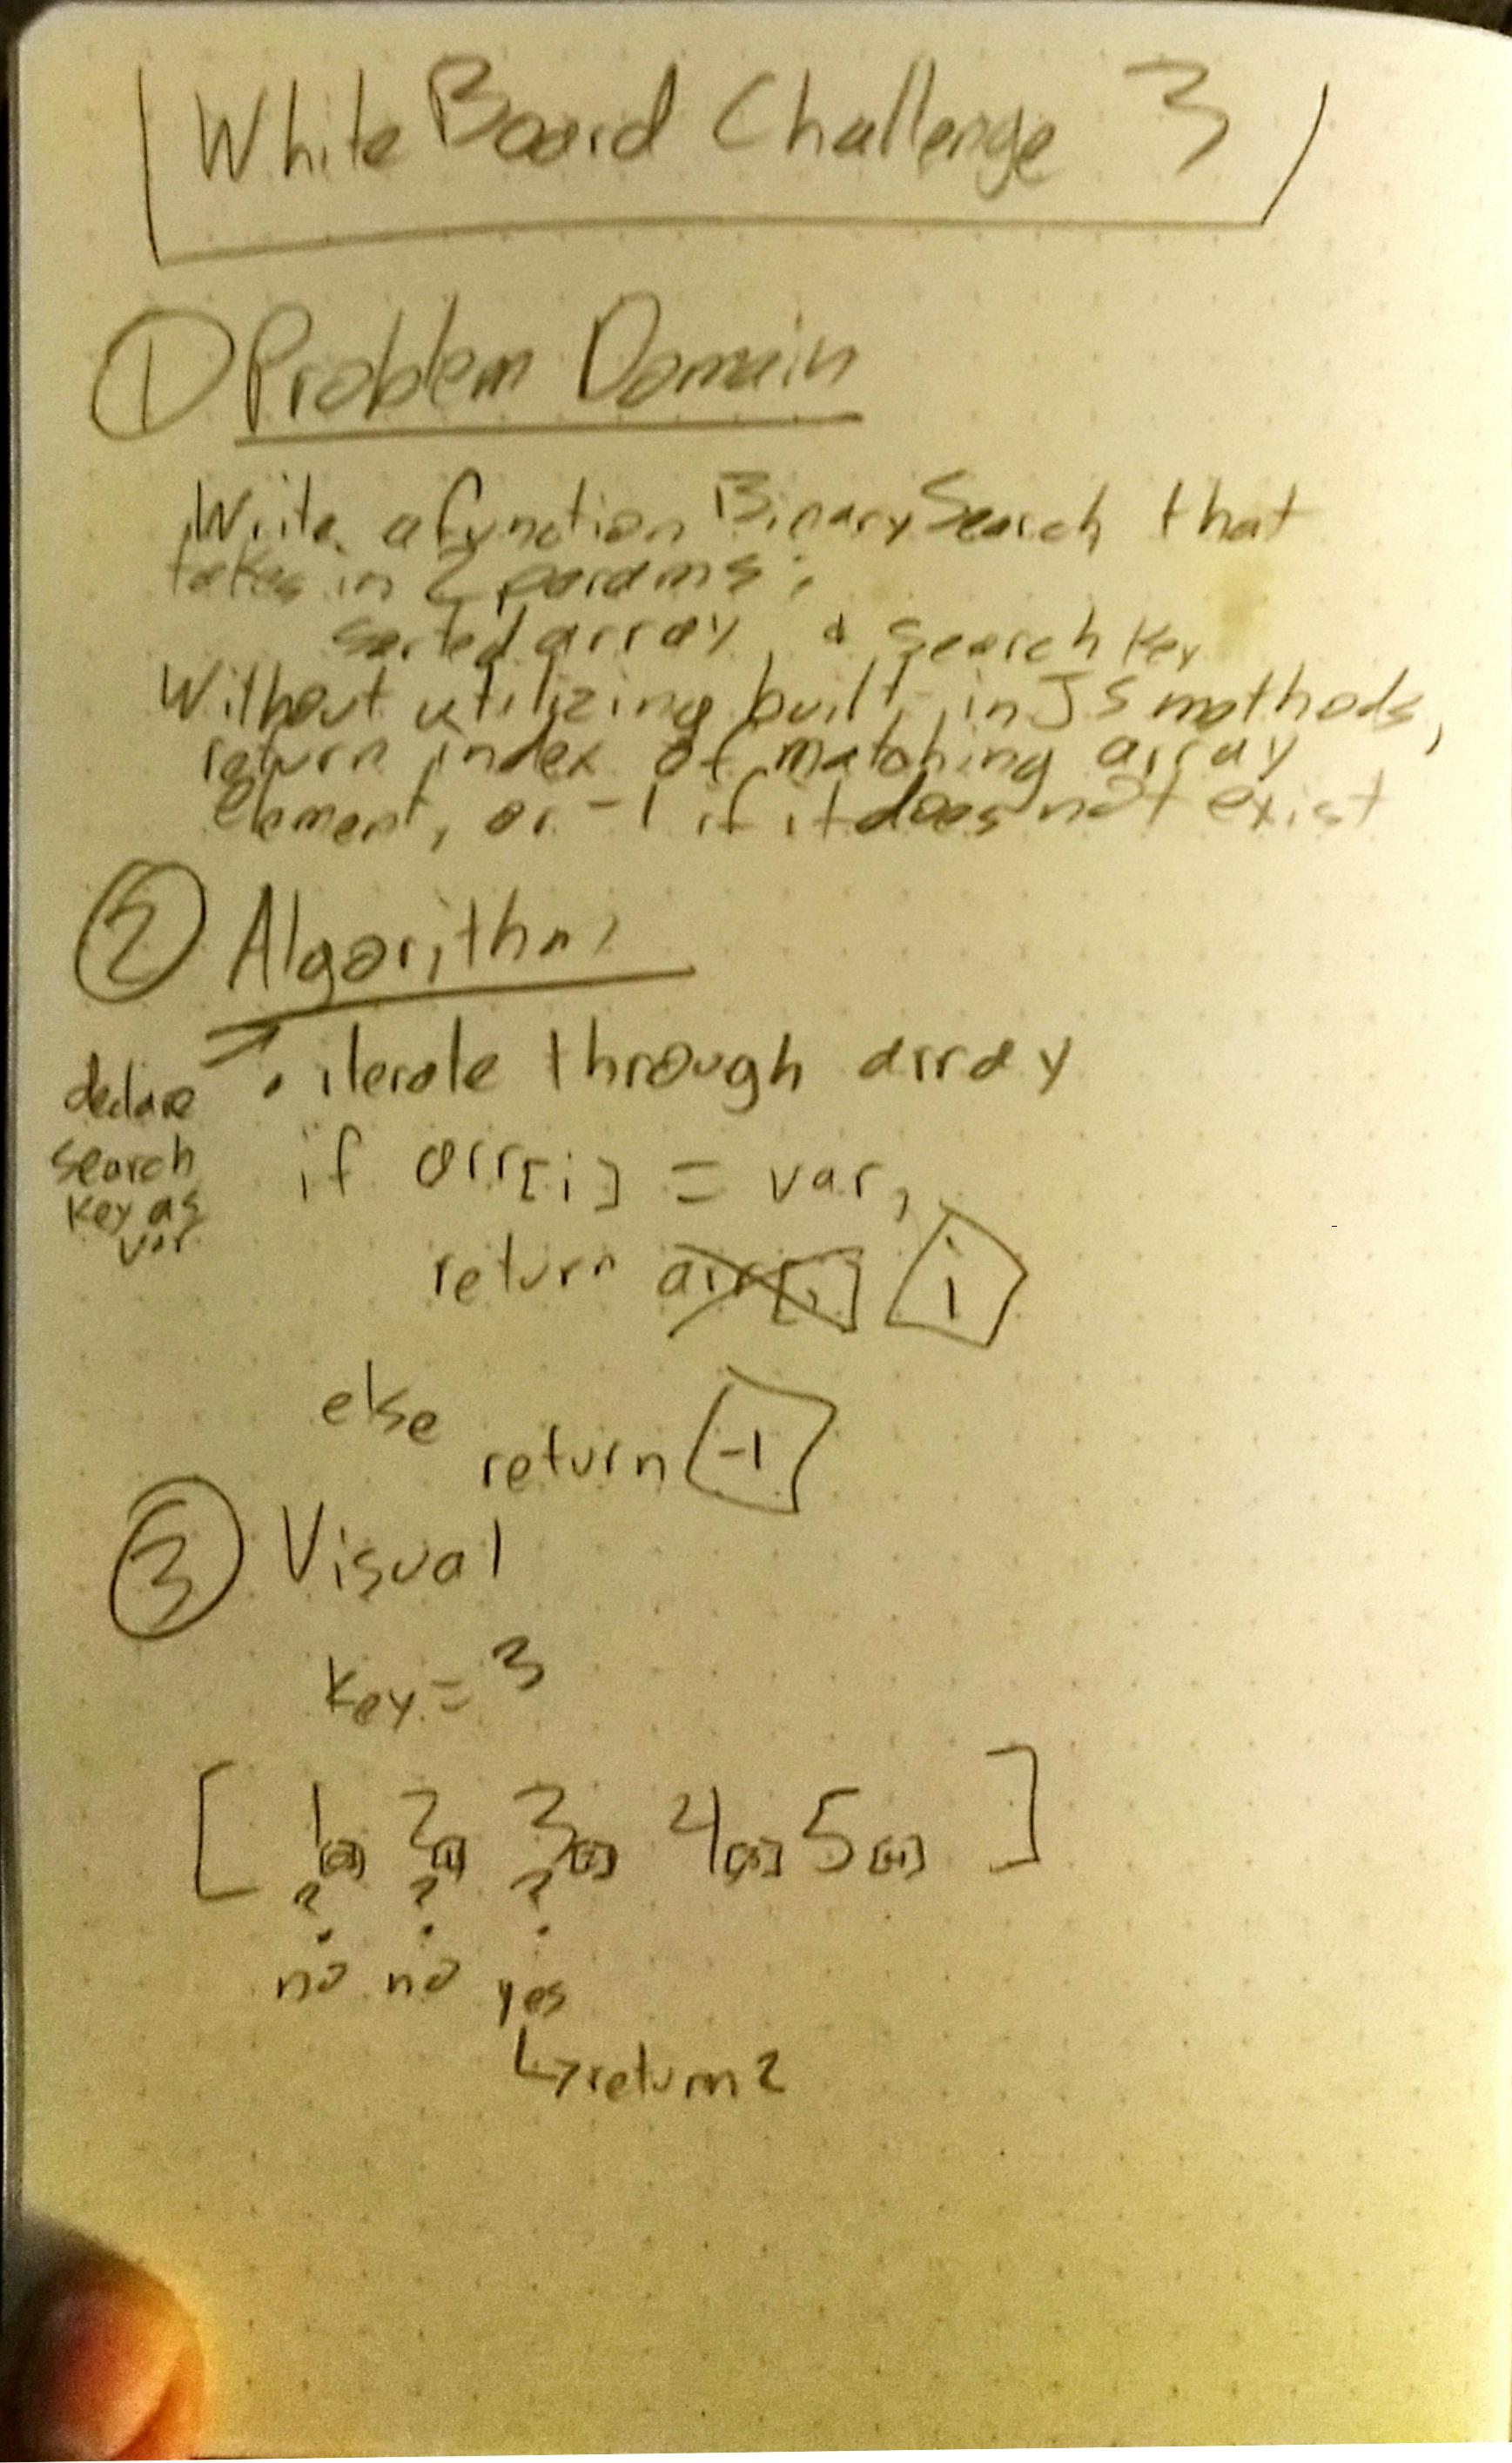 White Board Challenge 3
① Problem Domain
Write a function BinarySearch that
takes in 2 params:
sorted array, & search key
Without utilizing built-in JS methods,
return index of matching array
element, or -1 if it does not exist
② Algorithm
declare
search
key as
var
• iterate through array
if arr[i] = var,
return arr[i] i
else
return -1
③ Visual
key = 3
[ 1[0] 2[1] 3[2] 4[3] 5[4] ]
? ? ?
no no yes
↳ return 2